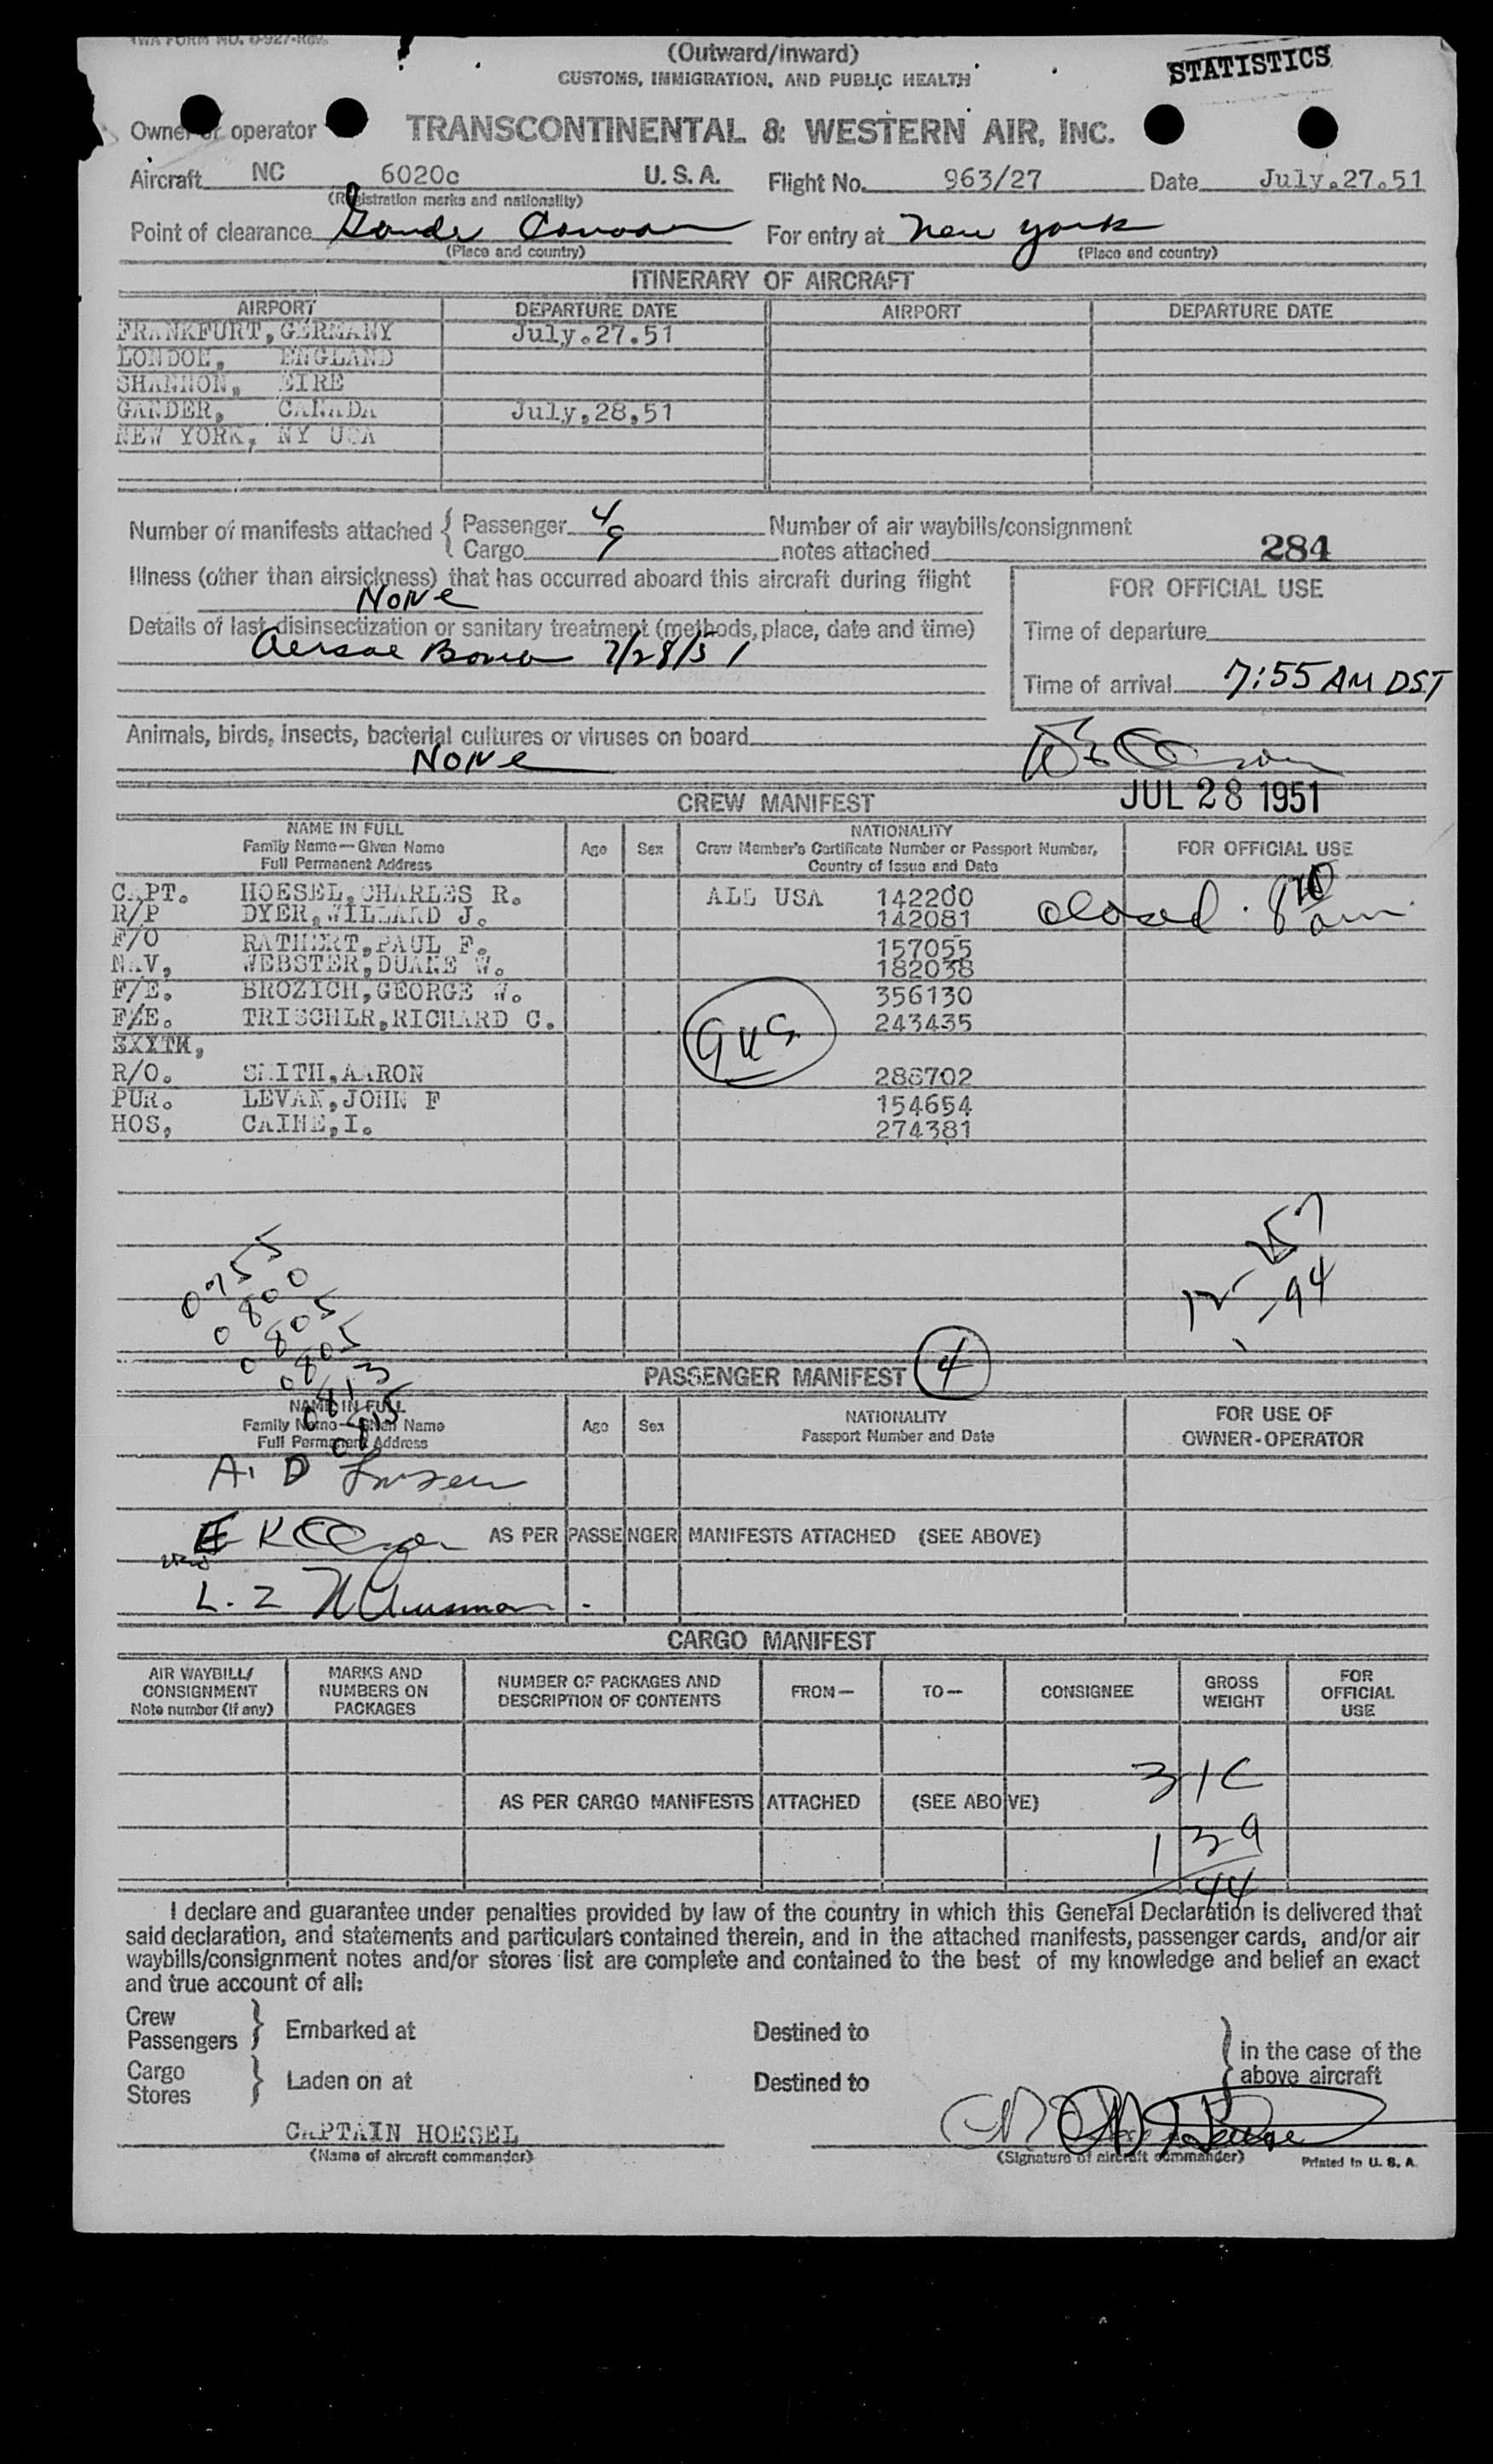 TWA FORM NO. 0-927-Rev.
(Outward/Inward)
CUSTOMS, IMMIGRATION, AND PUBLIC HEALTH
STATISTICS
Owner or operator TRANSCONTINENTAL & WESTERN AIR, INC.
Aircraft NC 6020c U.S.A. Flight No. 963/27 Date July.27.51
(Registration marks and nationality)
Point of clearance Gander Canada For entry at New York
(Place and country) (Place and country)
ITINERARY OF AIRCRAFT
AIRPORT DEPARTURE DATE AIRPORT DEPARTURE DATE
FRANKFURT, GERMANY July.27.51
LONDON, ENGLAND
SHANNON, EIRE
GANDER, CANADA July,28,51
NEW YORK, NY USA
Number of manifests attached { Passenger 4 Number of air waybills/consignment
Cargo 9 notes attached 284
Illness (other than airsickness) that has occurred aboard this aircraft during flight
None
FOR OFFICIAL USE
Details of last disinsectization or sanitary treatment (methods, place, date and time)
7/28/51
Time of departure
Time of arrival 7:55 AM DST
Animals, birds, insects, bacterial cultures or viruses on board
None
JUL 28 1951
CREW MANIFEST
NAME IN FULL
Family Name—Given Name
Full Permanent Address
Age Sex
NATIONALITY
Crew Member's Certificate Number or Passport Number,
Country of Issue and Date
FOR OFFICIAL USE
CAPT. HOESEL, CHARLES R. ALL USA 142200
R/P DYER, WILLARD J. 142081
closed. 8 10 am.
F/O RATHERT, PAUL F. 157055
NAV, WEBSTER, DUANE W. 182038
F/E. BROZICH, GEORGE W. 356130
F/E. TRISCHLR, RICHARD C. 243435
SXXTH,
R/O. SMITH, AARON 288702
PUR. LEVAN, JOHN F 154654
HOS, CAINE, I. 274381
0755
0800
0805
0805
0813
57
94
PASSENGER MANIFEST 4
NAME IN FULL
Family Name—Given Name
Full Permanent Address
Age Sex
NATIONALITY
Passport Number and Date
FOR USE OF
OWNER-OPERATOR
A. D
E K
AS PER PASSENGER MANIFESTS ATTACHED (SEE ABOVE)
L. Z
CARGO MANIFEST
AIR WAYBILL/
CONSIGNMENT
Note number (If any)
MARKS AND
NUMBERS ON
PACKAGES
NUMBER OF PACKAGES AND
DESCRIPTION OF CONTENTS
FROM—
TO—
CONSIGNEE
GROSS
WEIGHT
FOR
OFFICIAL
USE
31C
AS PER CARGO MANIFESTS ATTACHED (SEE ABOVE)
139
44
I declare and guarantee under penalties provided by law of the country in which this General Declaration is delivered that
said declaration, and statements and particulars contained therein, and in the attached manifests, passenger cards, and/or air
waybills/consignment notes and/or stores list are complete and contained to the best of my knowledge and belief an exact
and true account of all:
Crew
Passengers } Embarked at Destined to
Cargo
Stores } Laden on at Destined to
} in the case of the
above aircraft
CAPTAIN HOESEL
(Name of aircraft commander)
(Signature of aircraft commander)
Printed in U. S. A.